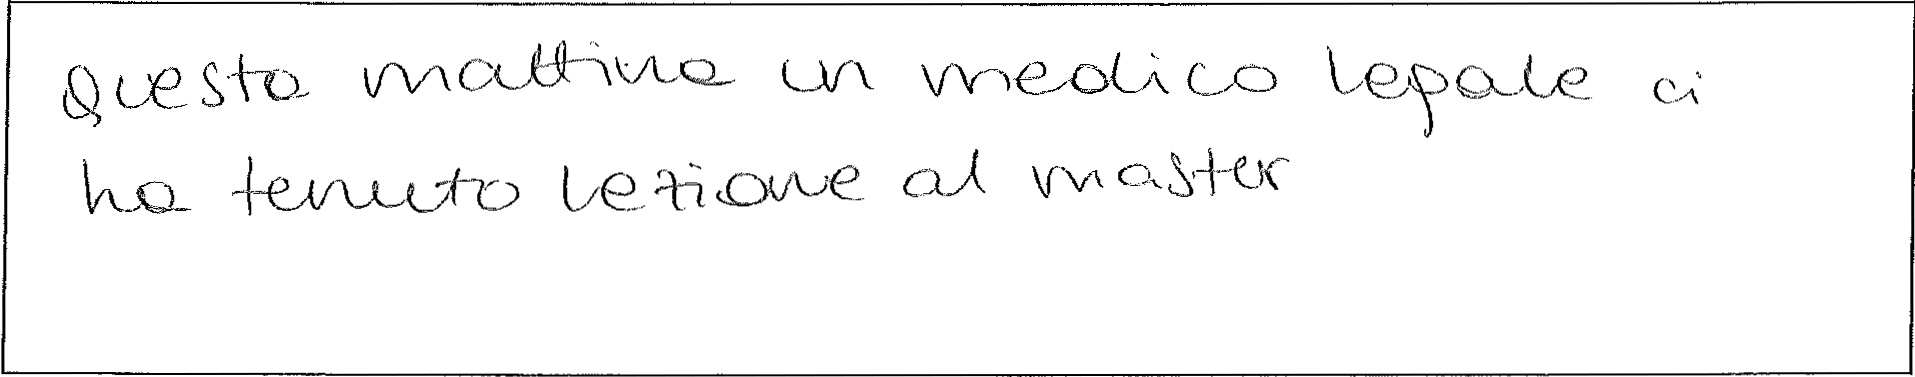 Questa mattina un medico legale ci
ha tenuto lezione al master